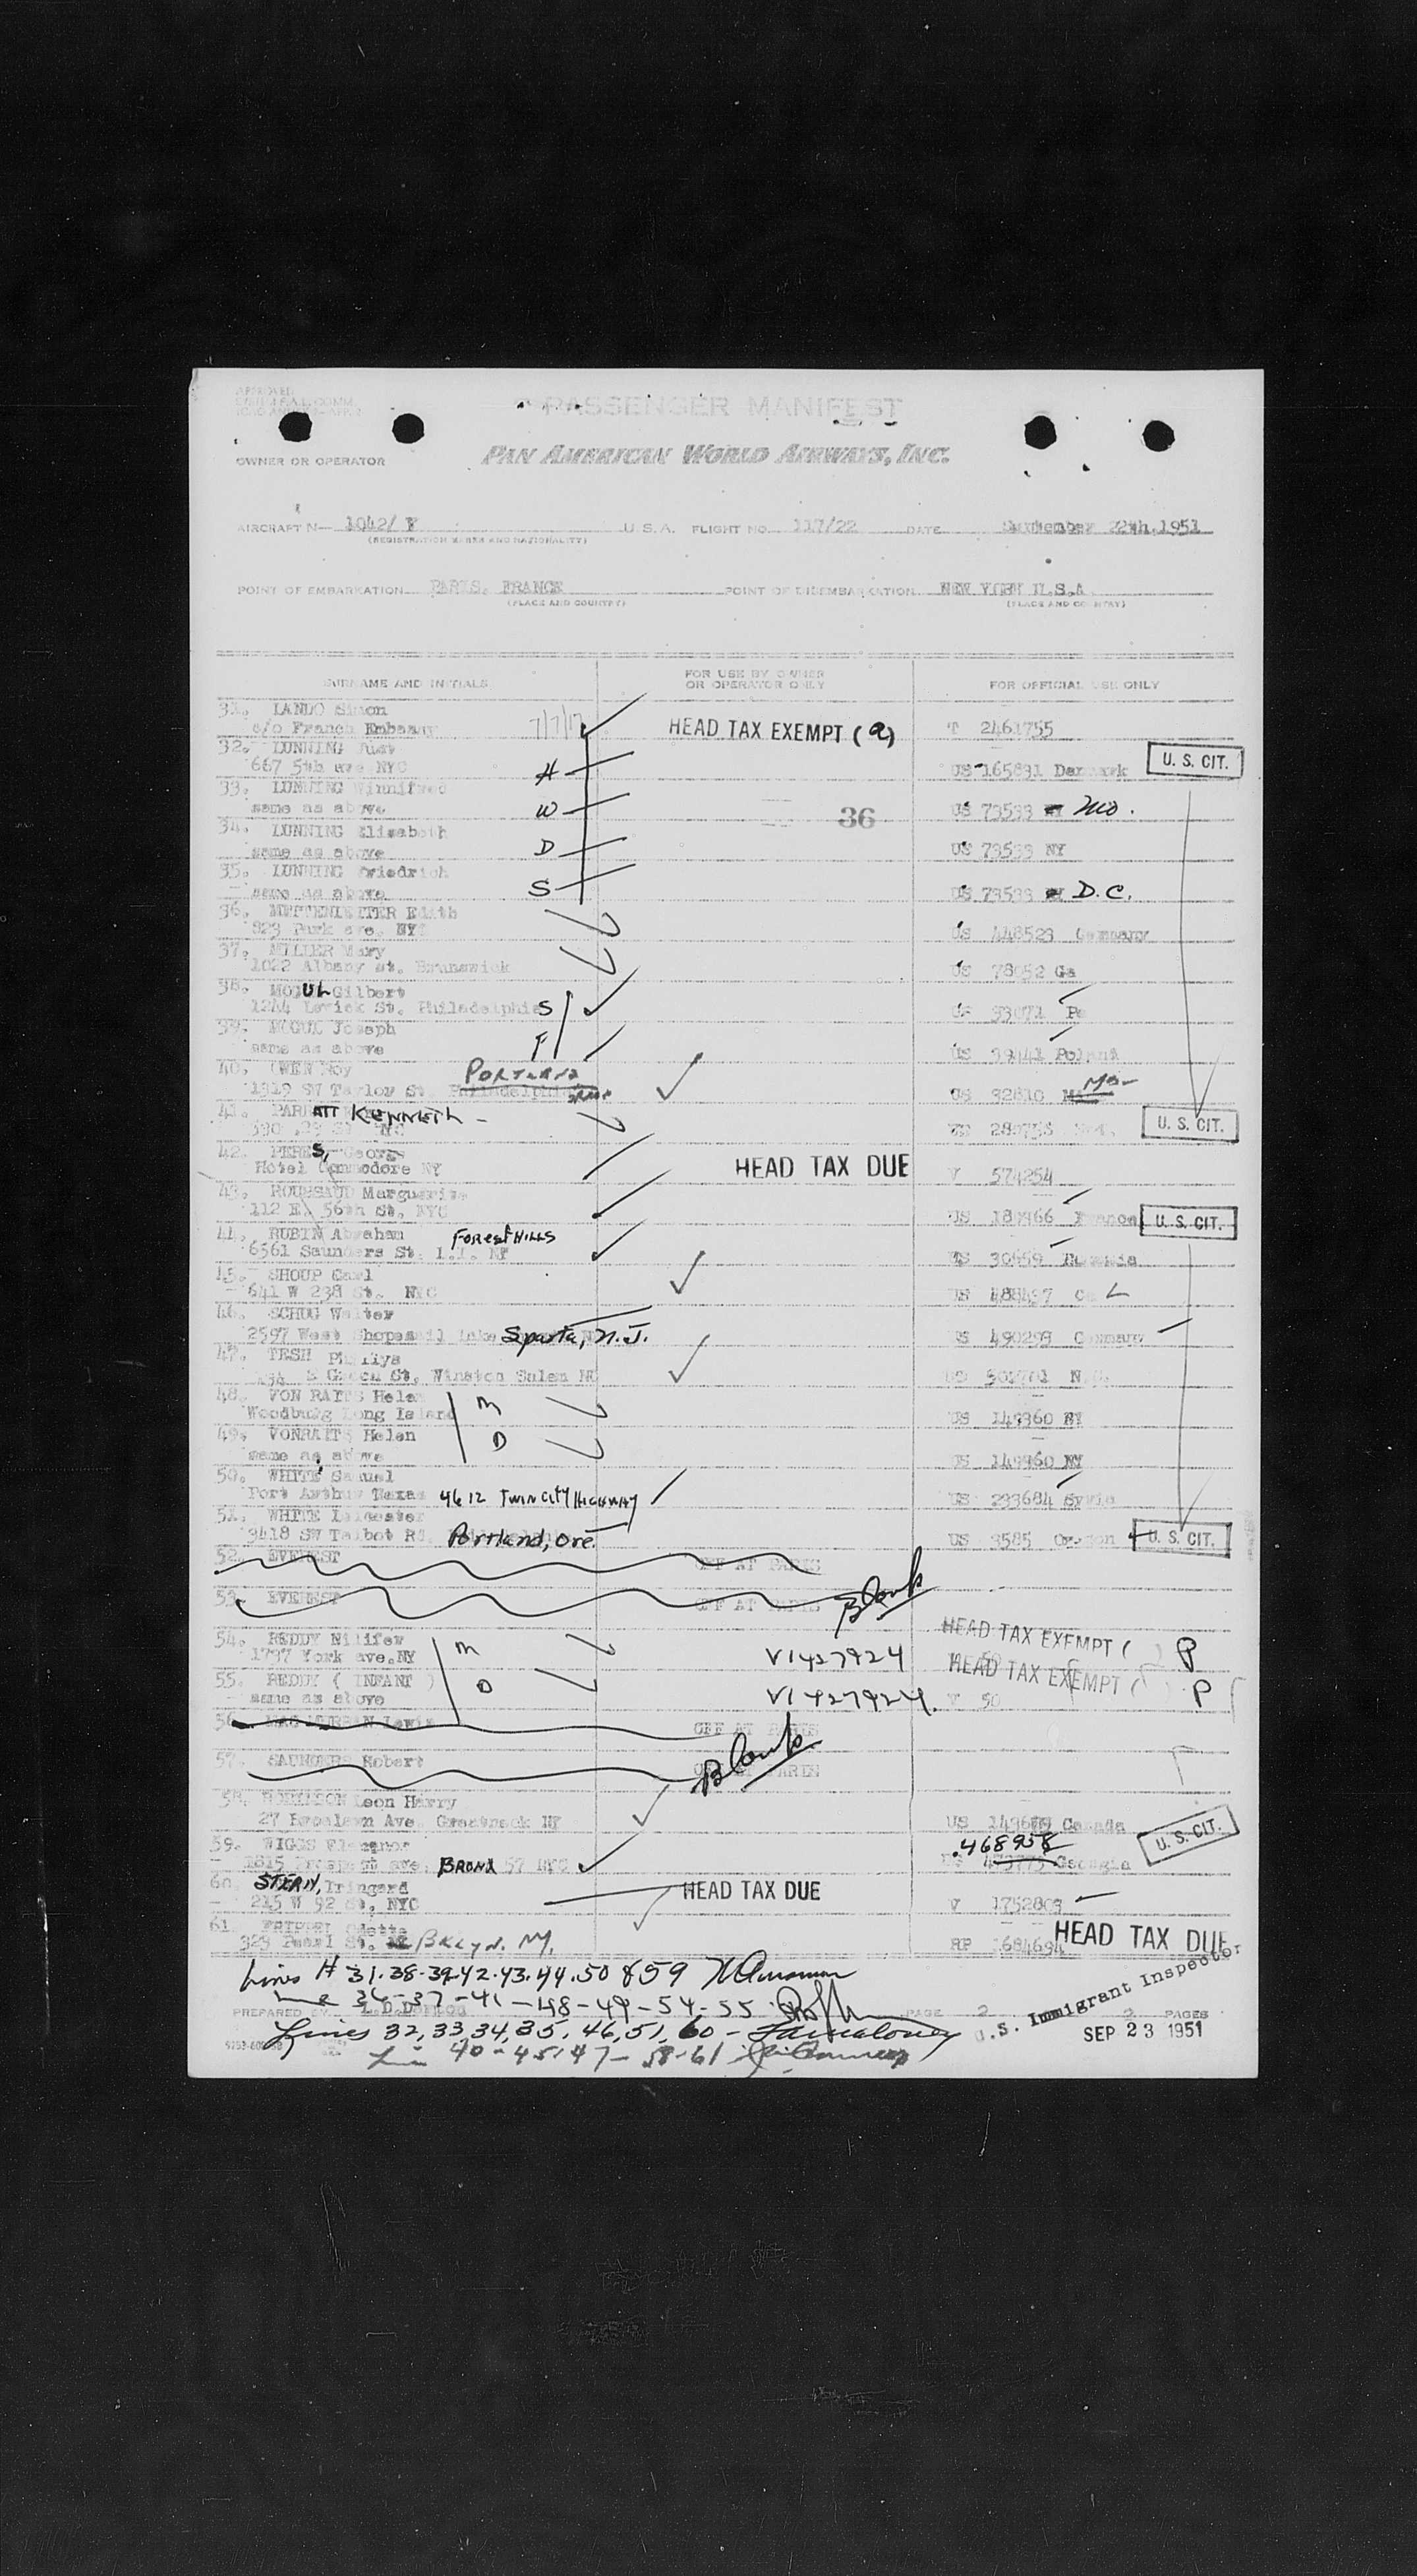 PASSENGER MANIFEST
OWNER OR OPERATOR PAN AMERICAN WORLD AIRWAYS, INC.
AIRCRAFT N— 1042/ V U.S.A. FLIGHT NO. 117/22 DATE September 22th, 1951
(REGISTRATION MARKS AND NATIONALITY)
POINT OF EMBARKATION PARIS, FRANCE POINT OF DISEMBARKATION NEW YORK U.S.A
(PLACE AND COUNTRY) (PLACE AND COUNTRY)
SURNAME AND INITIALS FOR USE BY OWNER OR OPERATOR ONLY FOR OFFICIAL USE ONLY
31. LANDO Simon
c/o French Embassy 7/7/17 HEAD TAX EXEMPT (a) T 2461755
32. LUNNING Just
667 5th ave NYC H US 165831 Denmark U. S. CIT.
33. LUNNING Winnifred
same as above W 36 US 73533 Mo.
34. LUNNING Elisabeth
same as above D US 73533 NY
35. LUNNING Friedrich
same as above S US 73533 D.C.
36. METTENLEITER Edith
823 Park ave. NYC US 448523 Germany
37. MILLER Mary
1022 Albany st. Brunswick US 78052 Ga
38. MOGUL Gilbert
1244 Levick St. Philadelphia S US 33071 Pa
39. MOGUL Joseph
same as above F US 39441 Poland
40. OWEN Roy Portland
1319 SW Taylor St. Philadelphia US 32810 Mo-
41. PARRATT KENNETH -
U. S. CIT.
42. PERES, George
Hotel Commodore NY HEAD TAX DUE V 574254
43. ROUSSAUD Marguerite
112 E. 56th St. NYC US 189366 France U. S. CIT.
44. RUBIN Abraham FOREST HILLS
6561 Saunders St. L.I. NY US 30659 Rumania
45. SHOUP Carl
641 W 238 St. NYC US 488497 Ca
46. SCHUG Walter
2597 West Shore Lake Sparta, N.J. US 490299 Germany
47. TESH
Winston Salem NC N.C.
48. VON RAITS Helen M
Woodburg Long Island US 149360 NY
49. VONRAITS Helen D
same as above US 149360 NY
50. WHITE Samuel
Port Arthur Texas 4612 TWIN CITY HIGHWAY US 233684 Syria
51. WHITE
9418 SW Talbot Rd. Portland, Ore. US 3585 Oregon U. S. CIT.
52. EVEREST OFF AT PARIS
53. EVEREST OFF AT PARIS Blank
54. REDDY Nilifer M HEAD TAX EXEMPT ( ) P
1797 York ave. NY V1427924
55. REDDY ( INFANT ) D HEAD TAX EXEMPT ( ) P
same as above V1427924. V 50
56. Lewis OFF AT PARIS
57. SAUNDERS Robert OFF AT PARIS Blank
58. ROBINSON Leon Harry
27 Ave. Greatneck NY Canada
59. WIGGS Eleanor 468958 U. S. CIT.
1815 Prospect ave. BRONX 57 NYC US 473773 Georgia
60. STERN, Irmgard HEAD TAX DUE
215 W 92 St. NYC V 1752809
61. Odette HEAD TAX DUE
329 Pearl St. Bklyn. NY. RP 684694
Lines # 31-38-39-42-43-44-50 & 59
Line 36-37-41-48-49-54-55
PREPARED BY PAGE 2 2 PAGES
U.S. Immigrant Inspector
Lines 32, 33, 34, 35, 46, 51, 60 -
SEP 23 1951
40-45-47-58-61